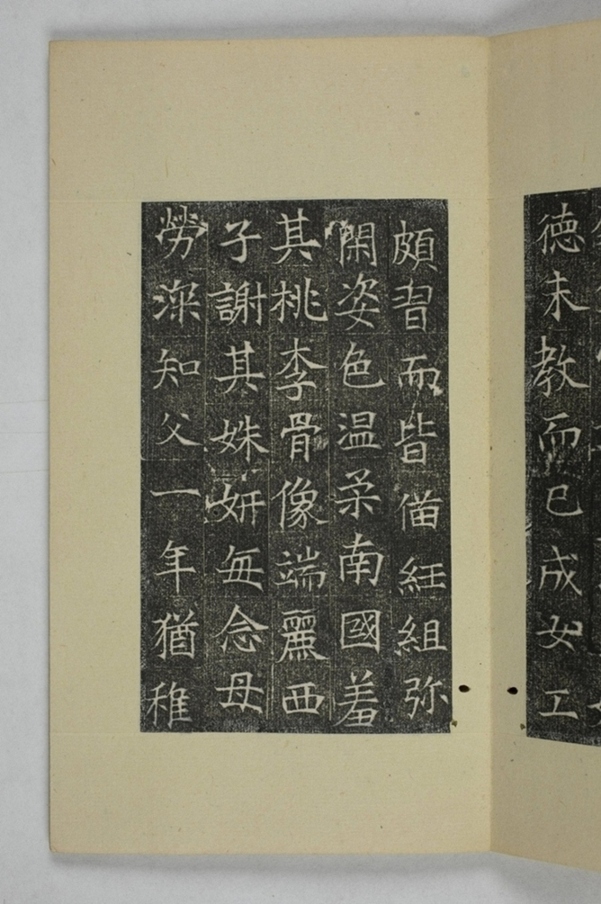 德未教而已成女工
頗習而皆俻紝組弥
閑姿色温柔南國羞
其桃李骨像端麗西
子謝其姝妍每念母
勞深知父一年猶稚